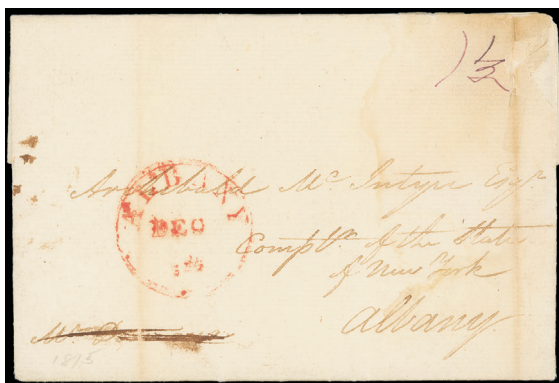 1½
Archibald Mc Intyre Esqr
ALBANY
DEC
Comptr of the State
of New York
Albany
Mr
1815